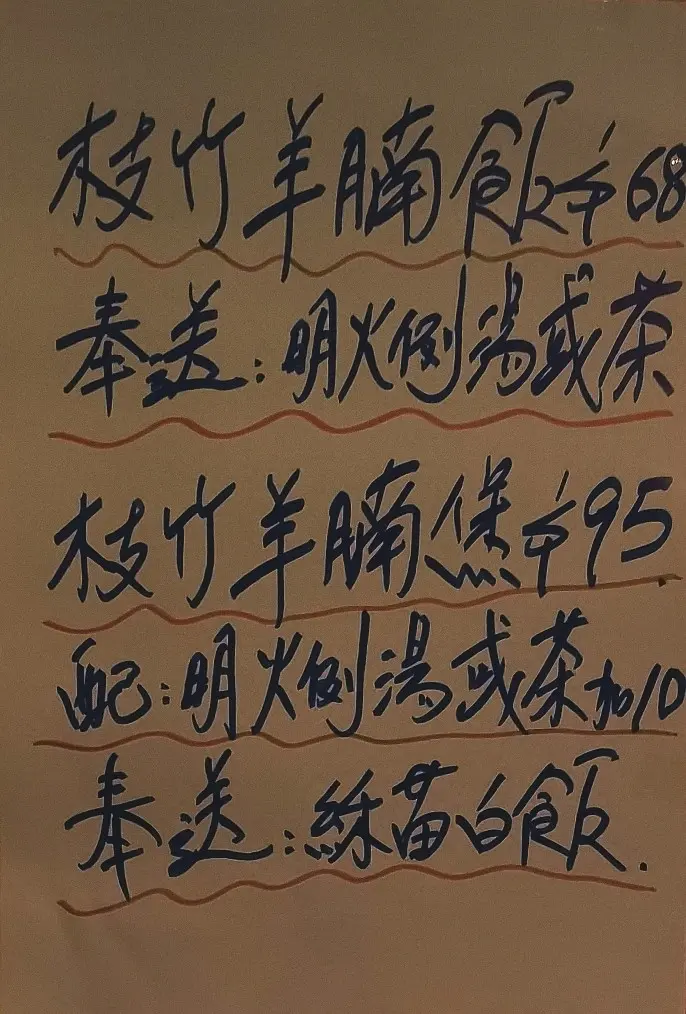 枝竹羊腩飯$68
奉送:明火例湯或茶
枝竹羊腩煲$95
配:明火例湯或茶加10
奉送:絲苗白飯.